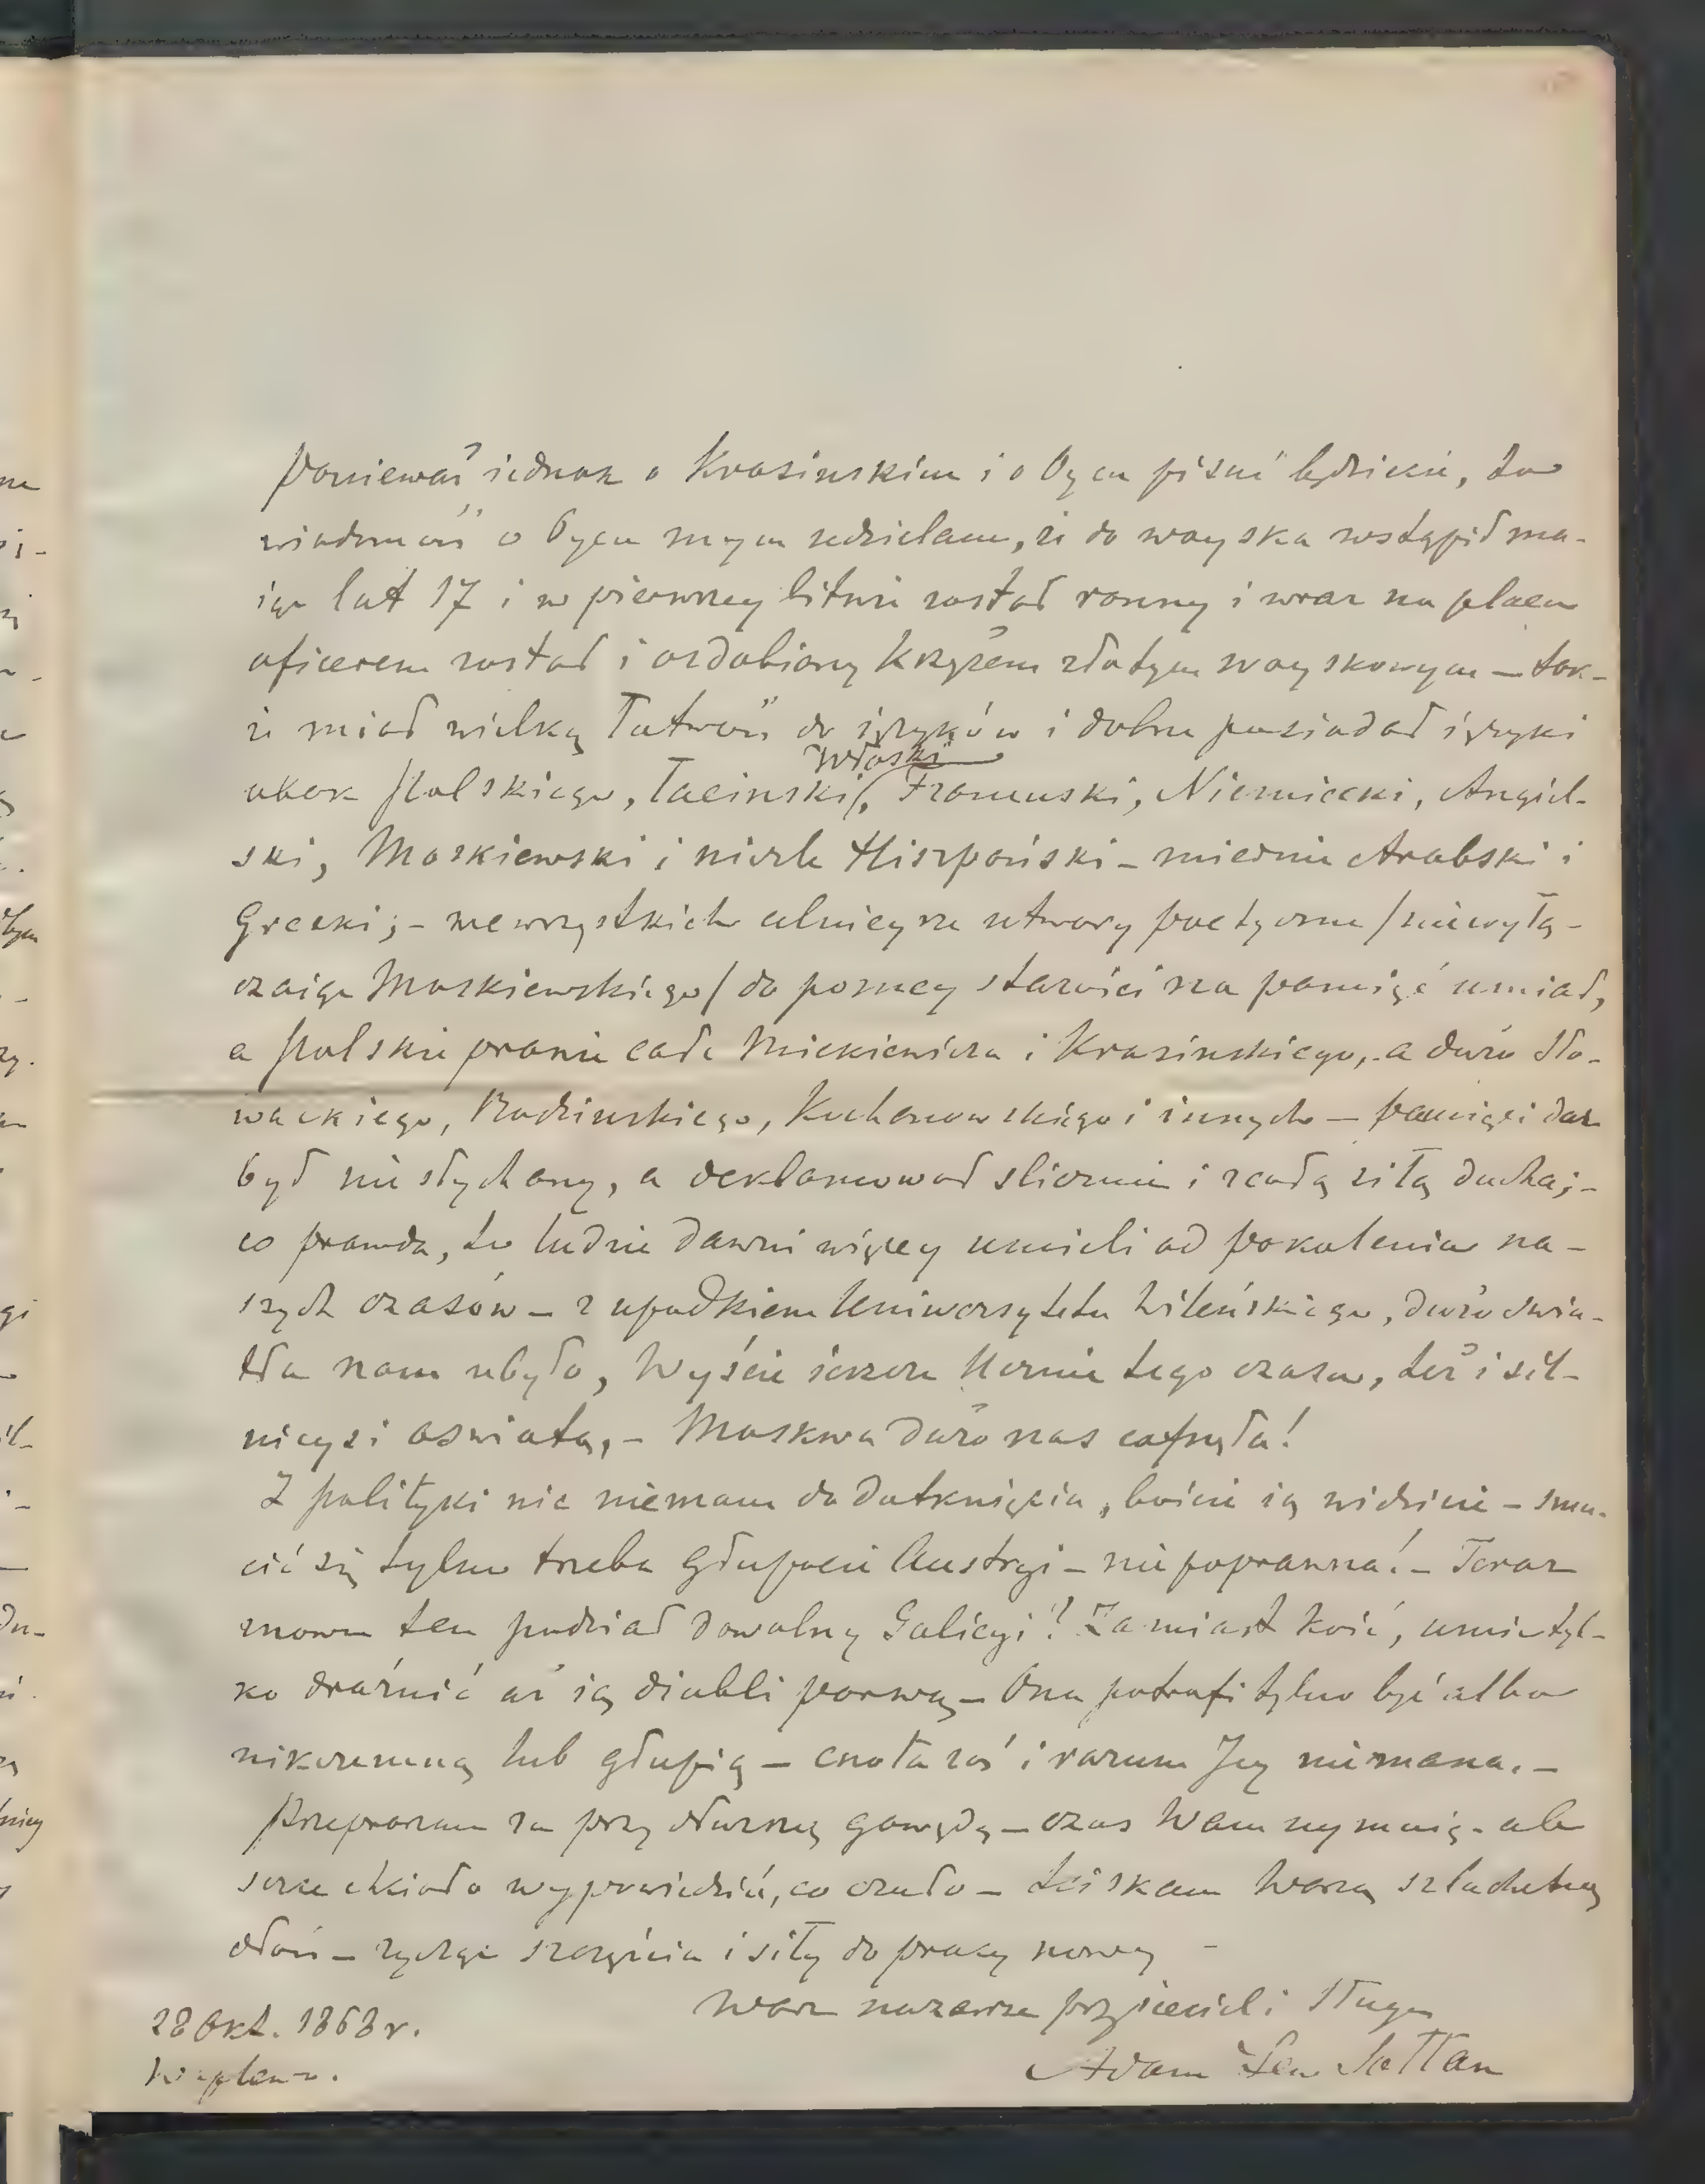 Ponieważ iednak o Krasinskim i o Oycu pisać będziecie, to
wiadomość o Oycu mym udzielam, że do woyska wstąpił ma-
iąc lat 17 i w pierwszey bitwie został ranny i wraz na placu
oficerem został i ozdobiony krzyżem złotym woyskowym — tak-
że miał wielką łatwość do ięzyków i dobrze posiadał ięzyki
obok Polskiego, Łacinski, Włoski, Francuski, Niemiecki, Angiel-
ski, Moskiewski i nieźle Hiszpański — miernie Arabski i
Grecki; — we wszystkich celnieysze utwory poetyczne /niewyłą-
czaiąc Moskiewskiego/ do pozney starości na pamięć umiał,
a Polskie prawie całe Mickiewicza i Krasinskiego, a dużo Sło-
wackiego, Brodzinskiego, Kochanowskiego i innych — pamięci dar
był niesłychany, a deklamował slicznie i z całą siłą ducha; —
co prawda, to ludzie dawni więcey umieli od pokolenia na-
szych czasów — z upadkiem Uniwersytetu Wileńskiego, dużo świa-
tła nam ubyło, Wyście ieszcze tego czasu, też i sil-
nieysi oswiatą, — Moskwa dużo nas cofnęła!
Z polityki nic niemam do dotknięcia, boście ią widzicie — smu-
cić się tylko trzeba głupocie Austryi — nie poprawna! — Teraz
znowu ten podział dowolny Galicyi! Zamiast koić, umie tyl-
ko drażnić aż ią diabli porwą — Ona potrafi tylko być albo
nikczemną lub głupią — cnota zaś i rozum Jey nieznana. —
Przepraszam za przydłuższą gawędę — czas Wam zaymuię — ale
serce chciało wypowiedzić, co czuło — Ściskam Waszą szlachetną
dłoń — życząc szczęścia i siły do pracy nowey —
Wasz nazawsze przyiaciel i sługa
Adam Lew Sołtan
28 Okt. 1868 r.